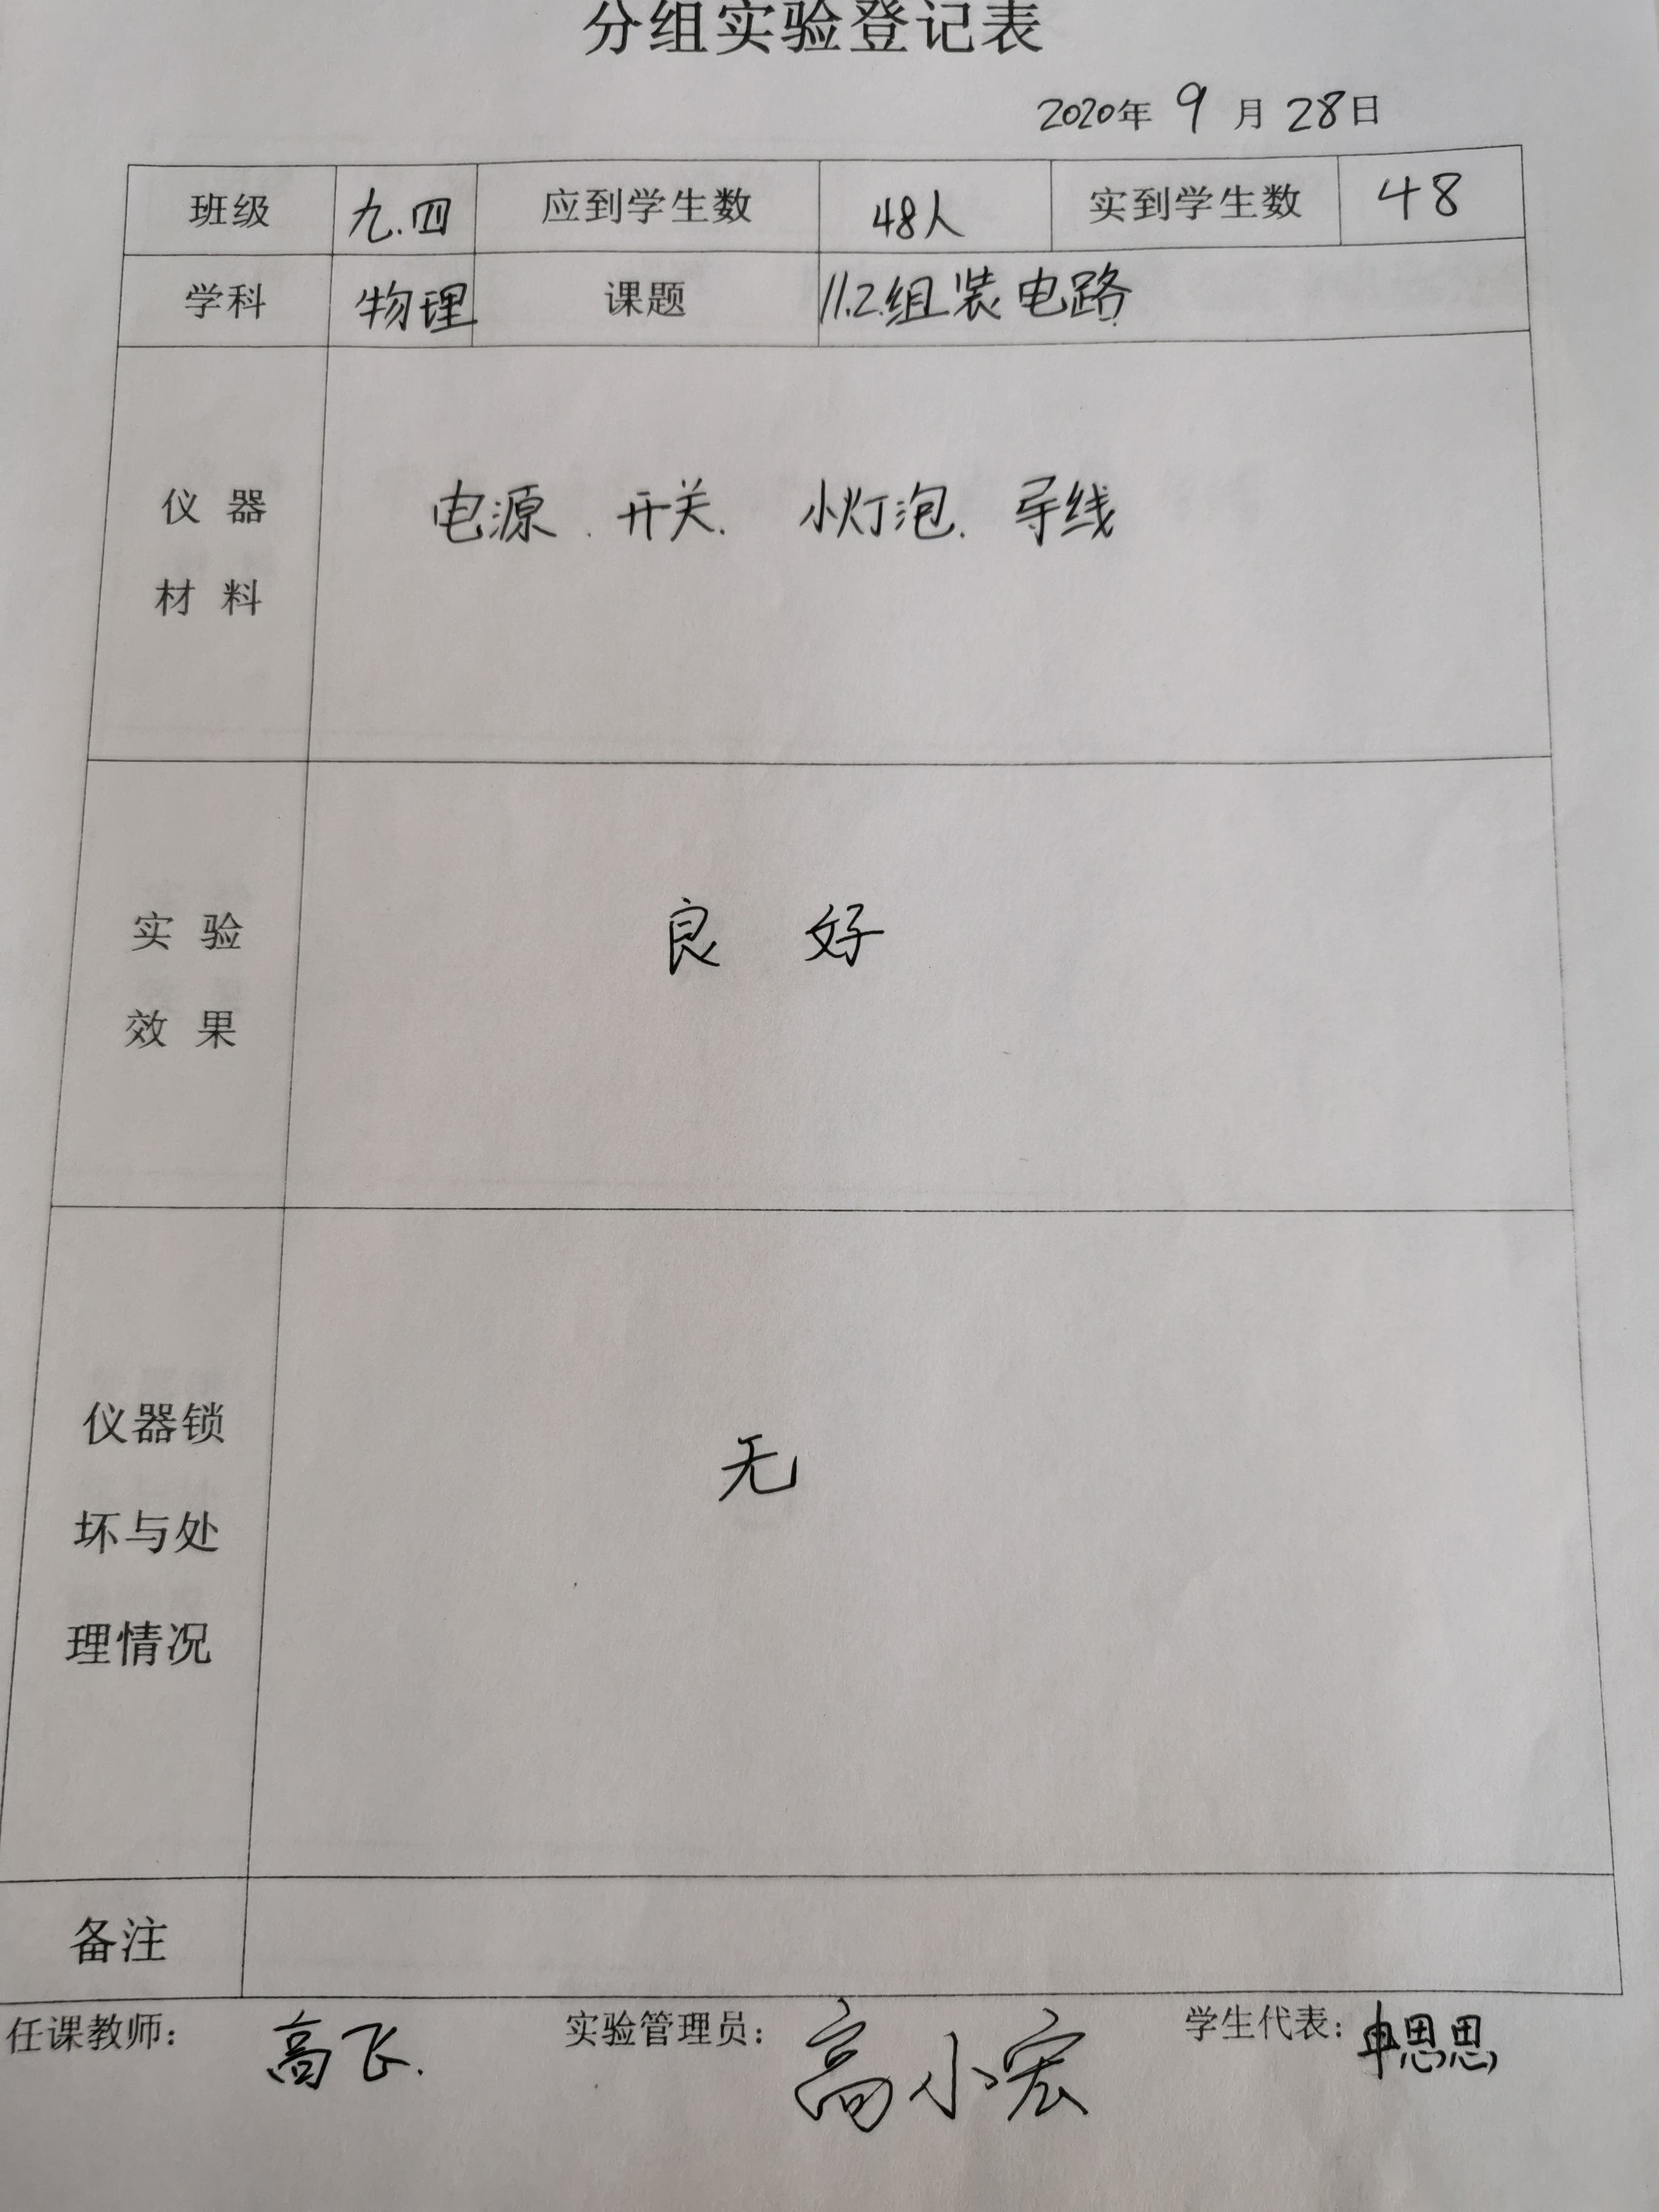 分组实验登记表
2020年 9 月 28日
班级 九.四 应到学生数 48人 实到学生数 48
学科 物理 课题 11.2.组装电路
仪 器
材 料
电源. 开关. 小灯泡. 导线
实 验
效 果
良 好
仪器锁
坏与处
理情况
无
备注
任课教师: 高飞. 实验管理员: 高小宏 学生代表: 申思思